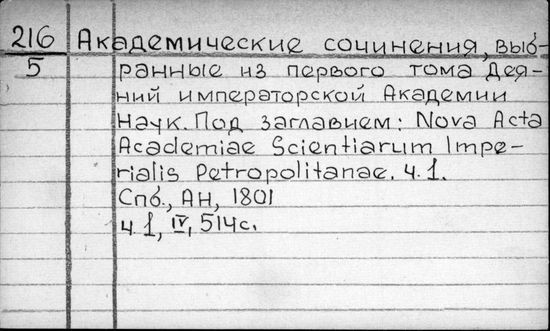 216 Академические сочинения, выб-
5 ранные из первого тома Дея-
ний императорской Академии
наук. Под заглавием: Nova Acta
Academiae Scientiarum Impe-
rialis Petropolitanae. ч. 1.
Спб., АН, 1801
ч. 1, IV, 514с.